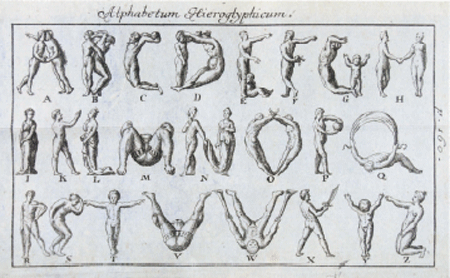 Alphabetum Hieroglyphicum.
A B C D E F G H
I K L M N O P Q
R S T V W X Y Z